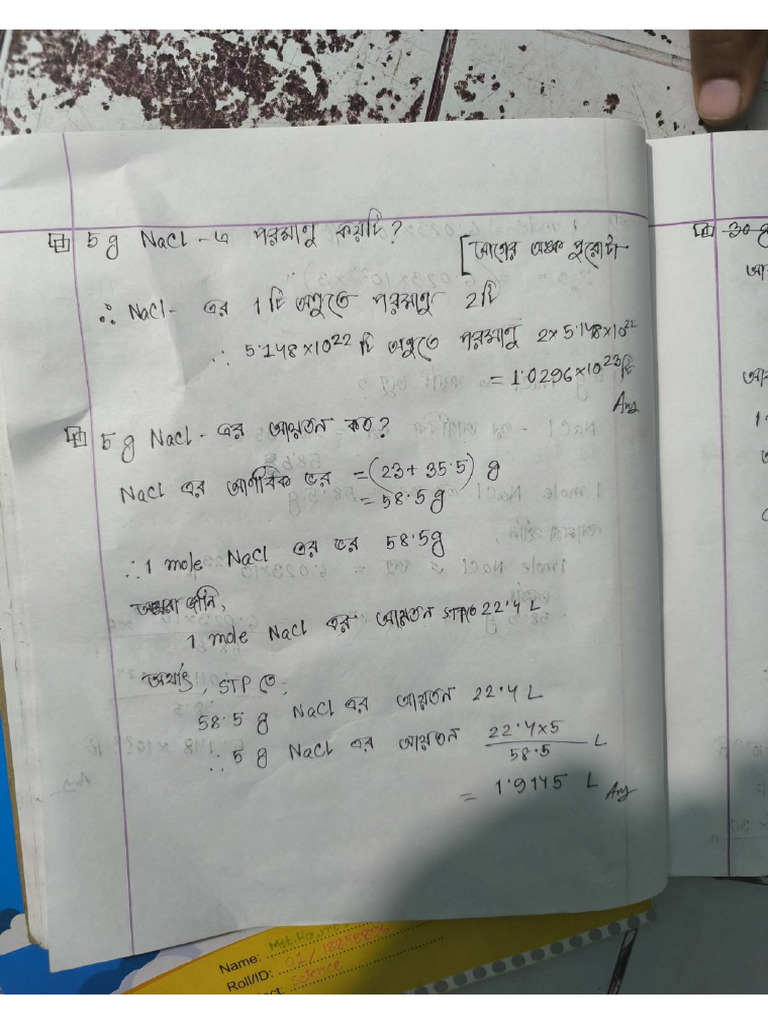 5 g NaCl - এ পরমাণু কয়টি?
[আগের অঙ্ক পুরোটা
∴ NaCl- এর 1 টি অণুতে পরমাণু 2 টি
∴ 5.148×10²² টি অণুতে পরমাণু 2×5.148×10²²
= 1.0296×10²³ টি
Ans
5 g NaCl - এর আয়তন কত?
NaCl এর আণবিক ভর = (23 + 35.5) g
= 58.5 g
∴ 1 mole NaCl এর ভর 58.5g
আমরা জানি,
1 mole NaCl এর আয়তন STPতে 22.4 L
অর্থাৎ, STP তে,
58.5 g NaCl এর আয়তন 22.4 L
∴ 5 g NaCl এর আয়তন 22.4×5/58.5 L
= 1.9145 L Ans
30 g
Name:
Roll/ID: 01/
Science